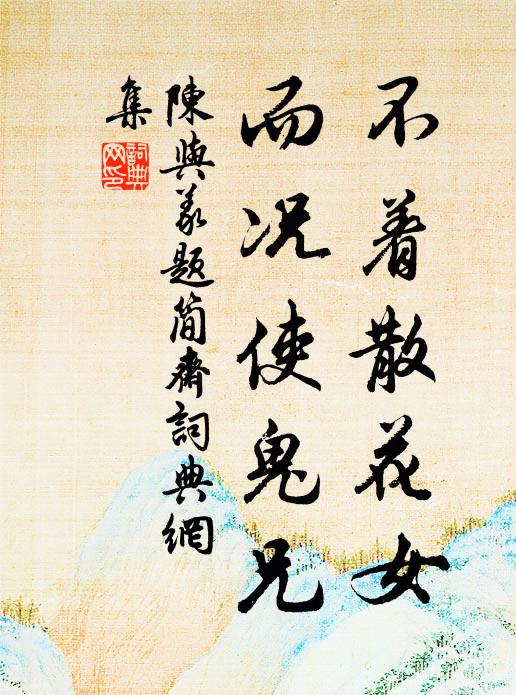 不着散花女
而况使鬼兄
陳與義題简齋詞典網
集
詞典
网印